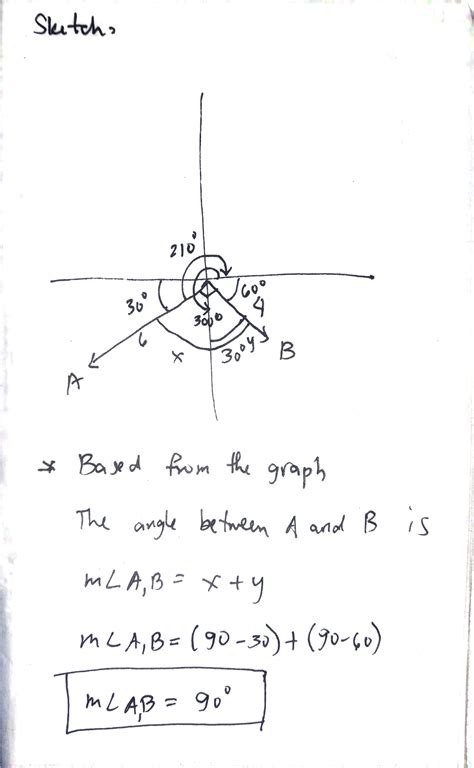 Sketch:
210°
30°
60°
300°
4
6
x
30°
y
B
A
* Based from the graph
The angle between A and B is
m∠A,B = x + y
m∠A,B = (90-30) + (90-60)
m∠A,B = 90°